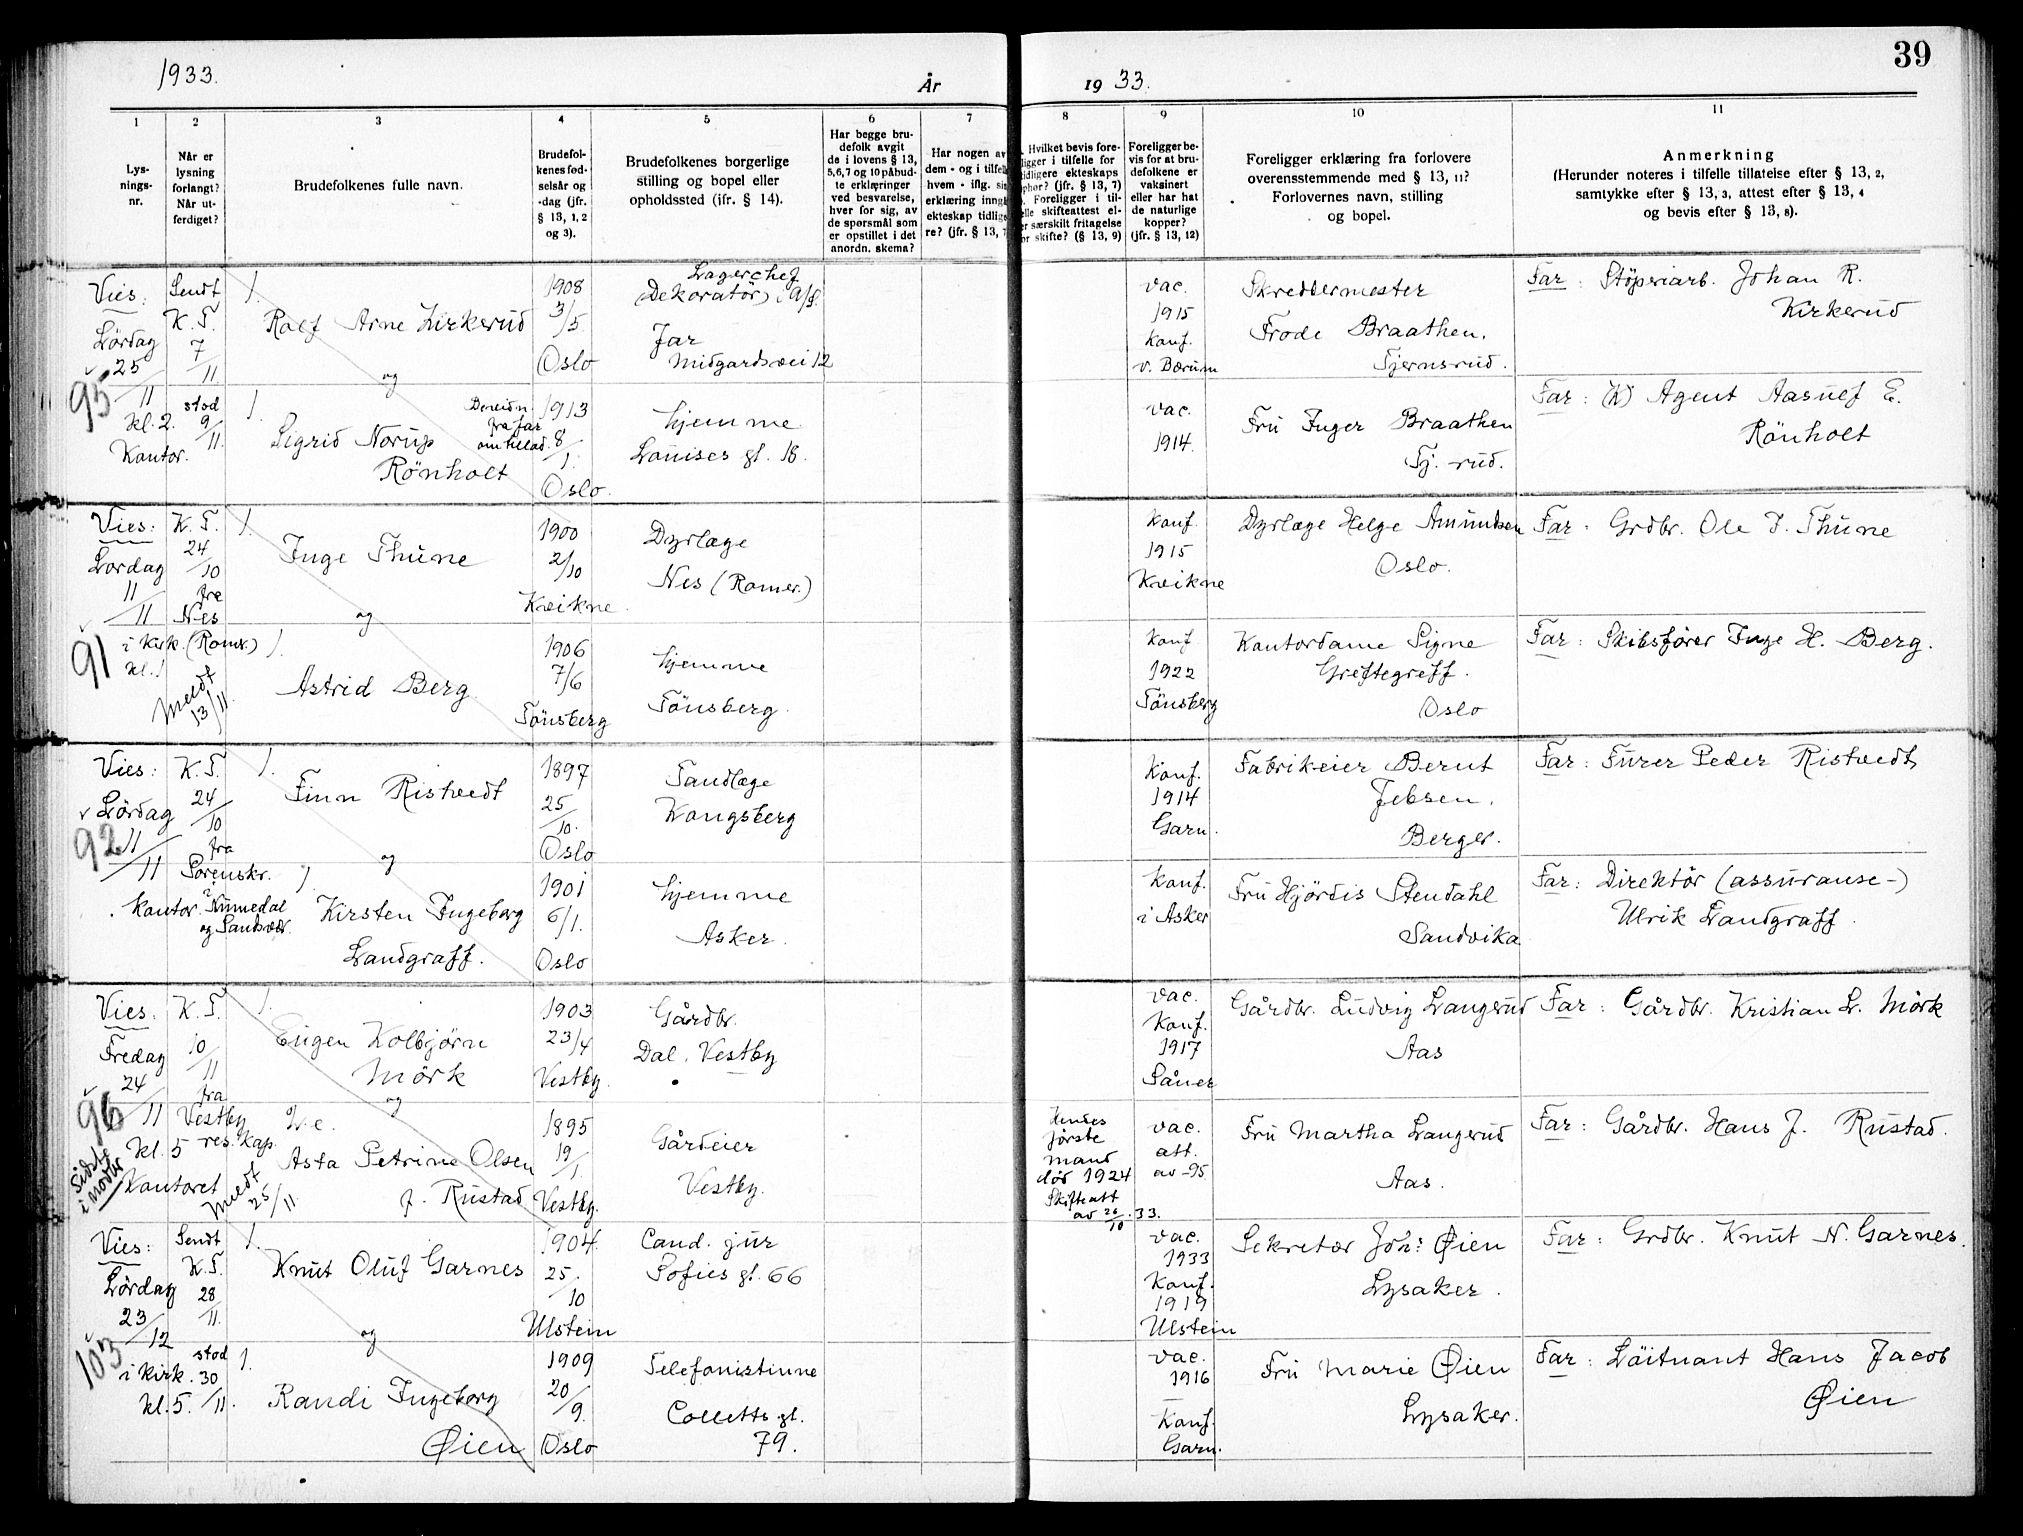 39
1933.
År
19 33.
1
2
3
4
5
6
7
8
9
10
11
Lys-
nings-
nr.
Når er
lysning
forlangt?
Når ut-
ferdiget?
Brudefolkenes fulle navn.
Brudefol-
kenes fød-
selsår og
-dag (jfr.
§ 13, 1, 2
og 3).
Brudefolkenes borgerlige
stilling og bopel eller
opholdssted (ifr. § 14).
Har begge bru-
defolk avgit
de i lovens § 13,
5, 6, 7 og 10 påbud-
te erklæringer
ved besvarelse,
hver for sig, av
de spørsmål som
er opstillet i det
anordn. skema?
Har nogen av
dem - og i tilfelle
hvem - iflg. sin
erklæring inngå
ekteskap tidlige
re? (jfr. § 13, 7
Hvilket bevis fore-
ligger i tilfelle for
tidligere ekteskaps
ophør? (jfr. § 13, 7)
Foreligger i til-
elle skifteattest el-
er særskilt fritagelse
or skifte? (§ 13, 9)
Foreligger be-
vis for at bru-
defolkene er
vaksinert
eller har hat
de naturlige
kopper?
(jfr. § 13, 12)
Foreligger erklæring fra forlovere
overensstemmende med § 13, 11?
Forlovernes navn, stilling
og bopel.
Anmerkning
(Herunder noteres i tilfelle tillatelse efter § 13, 2,
samtykke efter § 13, 3, attest efter § 13, 4
og bevis efter § 13, 8).
95
Vies:
Lördag
25/11
kl. 2.
Kontor.
Sendt
K. T.
7/11
stod
9/11.
1.
Rolf Arne Kirkerud
og
1908
3/5
Oslo
Lagerchef
(Dekoratör) i A/S.
Jar
Midgardsvei 12
vac.
1915
Konf.
v. Bærum
Skreddermester
Frode Braathen.
Tjernsrud.
Far: Stöperiarb. Johan R.
Kirkerud
1.
Sigrid Norup
Rönholt
fra far
om tillad.
1913
8/1.
Oslo.
hjemme
Louises gt. 18.
vac.
1914.
Fru Inger Braathen
Tj. rud.
Far: (K) Agent Aasulf E.
Rönholt
91
Vies:
Lordag
11/11
i Kirk.
kl. 1
K. T.
24/10
fra
Nes
(Romr.)
Meldt
13/11.
1.
Inge Thune
og
1900
2/10
Kvikne.
Dyrlæge
Nes (Romer.)
Konf.
1915
Kvikne
Dyrlæge Helge Amundsen
Oslo.
Far: Grdbr. Ole J. Thune
1.
Astrid Berg
1906
7/6
Tönsberg
hjemme
Tönsberg.
Konf
1922
Tönsberg
Kontordame Signe
Greftegreff.
Oslo
Far: Skibsfører Inge H. Berg.
92
Vies:
Lördag
11/11
Kontor.
K. T.
24/10
fra
Sorenskr.
i Numedal
og Sandsvær.
1.
Finn Ristvedt
og
1897
25/10.
Oslo
Tandlæge
Kongsberg
Konf.
1914
Garn.
Fabrikeier Bernt
Jebsen.
Berger.
Far: Furer Peder Ristvedt
1.
Kirsten Ingeborg
Landgraff.
1901
6/1.
Oslo
hjemme
Asker.
Konf.
i Asker
Fru Hjördis Stendahl
Sandvika
Far: Direktör (assuranse-)
Ulrik Landgraff.
96
Sidste
i nodbr
Vies:
Fredag
24/11
kl. 5
Kontoret
K. T.
10/11
fra
Vestby
res. kap.
Meldt
25/11
1.
Eugen Kolbjörn
Mörk
og
1903
23/4
Vestby.
Gårdbr.
Dal, Vestby
vac.
Konf.
1917
Såner
Gårdbr. Ludvig Langerud
Aas
Far: Gårdbr. Kristian L. Mörk
E. e.
Asta Petrine Olsen
f. Rustad
1895
19/1.
Vestby.
Gårdeier
Vestby.
Hendes
förste
mand
död 1924
Skifteatt
av 26/10.33.
vac.
att.
av -95.
Fru Martha Langerud
Aas.
Far: Gårdbr. Hans J. Rustad.
103
Vies:
Lördag
23/12
i Kirk.
kl. 5.
Sendt
K. T.
28/11.
stod
30/11.
1.
Knut Oluf Garnes
og
1904.
25/10
Ulstein
Cand. jur
Sofies gt. 66
vac.
1933
Konf.
1919
Ulstein
Sekretær Joh: Øien
Lysaker.
Far: Grdbr. Knut N. Garnes.
1.
Randi Ingeborg
Øien
1909
20/9.
Oslo
Telefonistinne
Colletts gt.
79.
vac.
1916
Konf.
Garn.
Fru Marie Øien
Lysaker.
Far: Löitnant Hans Jacob
Øien